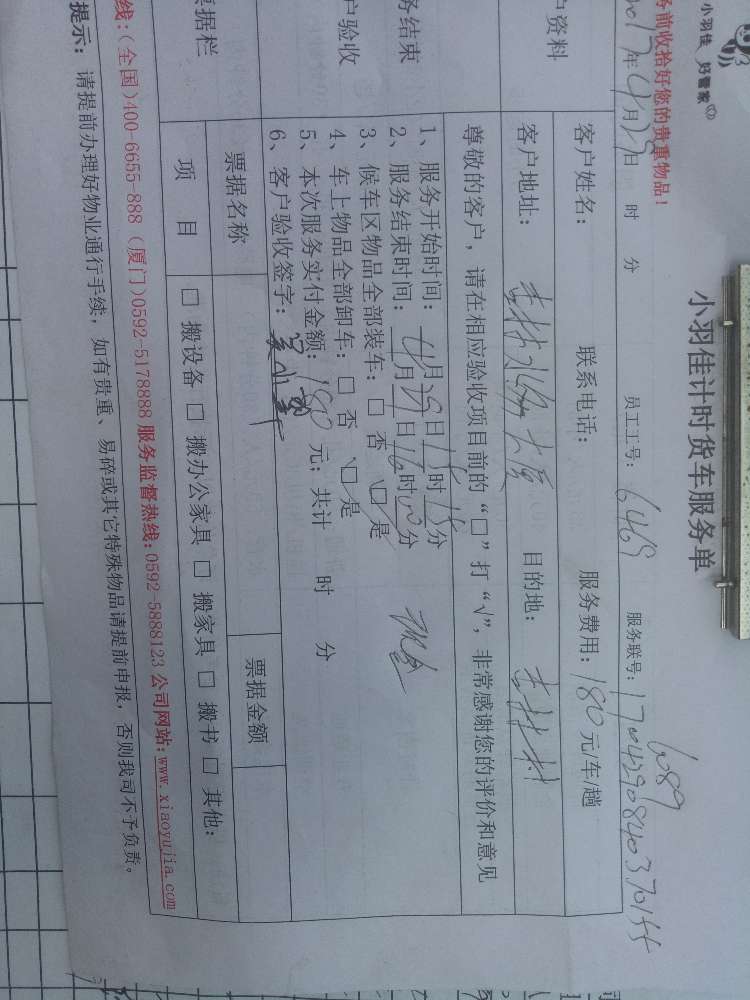 小羽佳 好管家
小羽佳计时货车服务单
务前收拾好您的贵重物品!
2017年4月29日 时 分
员工工号: 6469
服务联号: 17042908403701
6089
户资料
客户姓名:
联系电话:
服务费用: 180元/车/趟
客户地址:
目的地:
尊敬的客户, 请在相应验收项目前的“□”打“√”, 非常感谢您的评价和意见
务结束
户验收
1、服务开始时间: 4月29日15时15分
2、服务结束时间: 4月29日16时00分
3、候车区物品全部装车: □ 否 □ 是
4、车上物品全部卸车: □ 否 □ 是
5、本次服务实付金额: 180 元; 共计 时 分
6、客户验收签字:
现金
票据栏
票据名称
票据金额
项 目
□ 搬设备 □ 搬办公家具 □ 搬家具 □ 搬书 □ 其他:
线:(全国)400-6655-888 (厦门)0592-5178888 服务监督热线:0592-5888123 公司网站:www.xiaoyujia.com
提示: 请提前办理好物业通行手续, 如有贵重、易碎或其它特殊物品请提前申报, 否则我司不予负责。